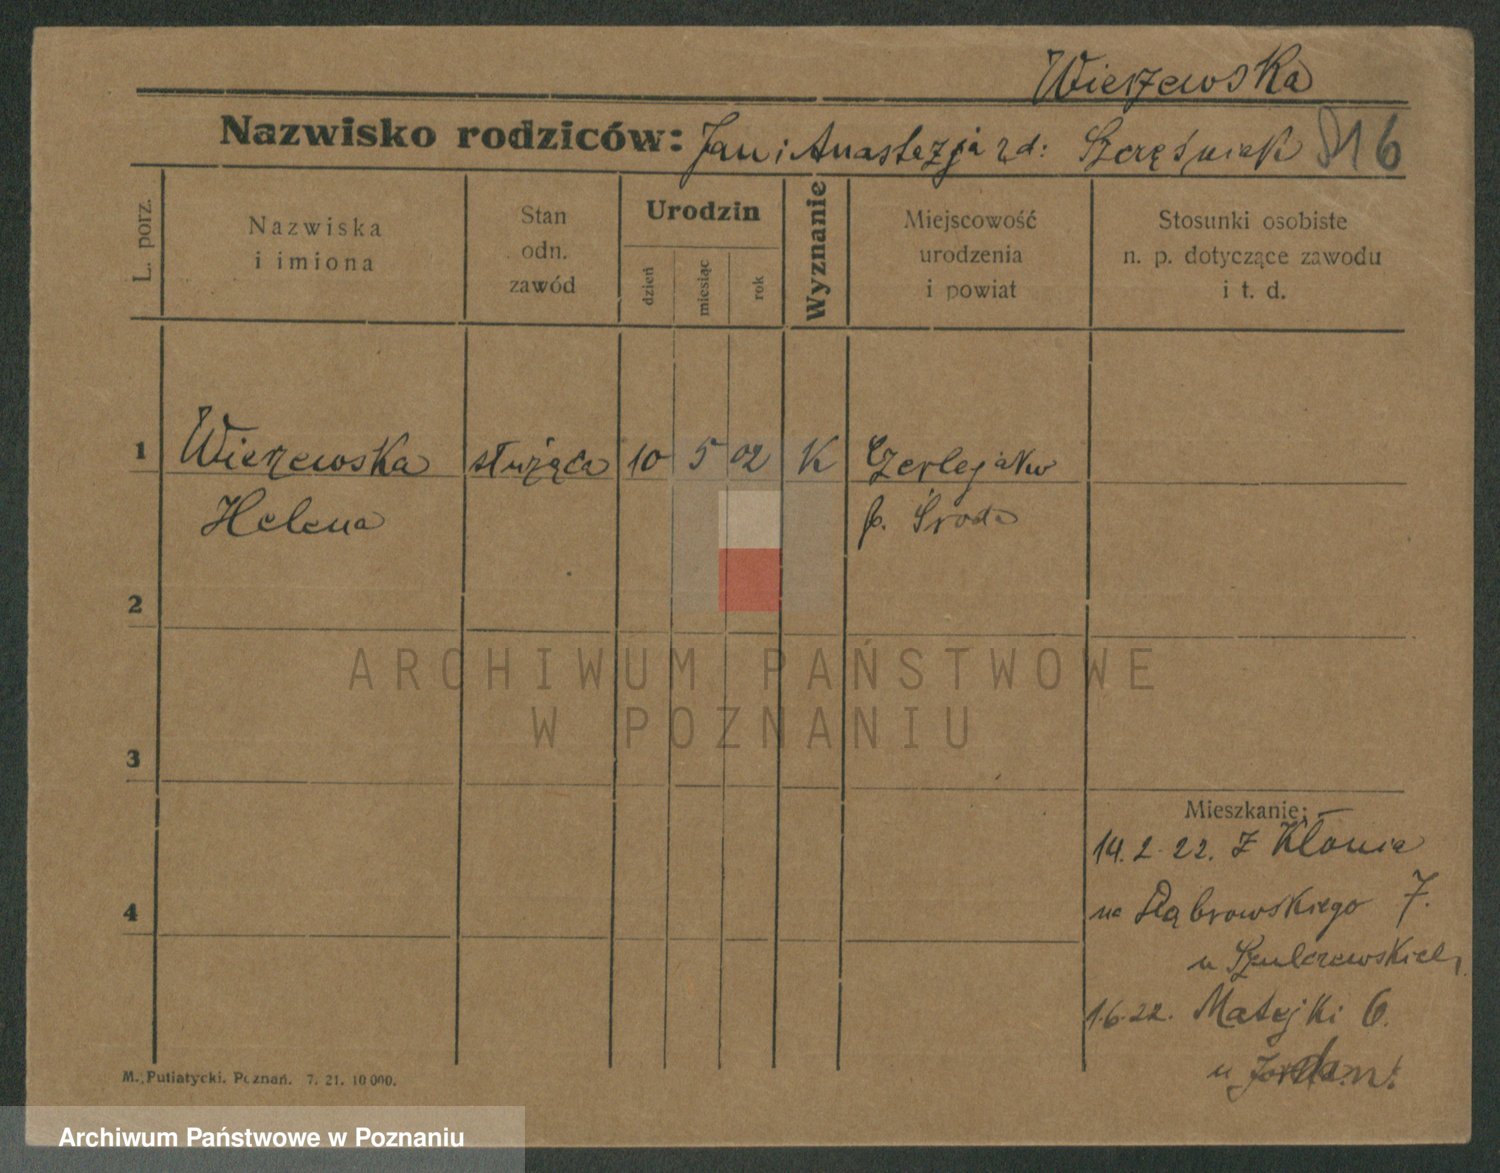 Wierzewska
Nazwisko rodziców: Jan i Anastazja rd: Szcześniak 816
L. porz.
Nazwiska
i imiona
Stan
odn.
zawód
Urodzin
dzień
miesiąc
rok
Wyznanie
Miejscowość
urodzenia
i powiat
Stosunki osobiste
n. p. dotyczące zawodu
i t. d.
1 Wierzewska służąca 10 5 02 K Czerlejakw
Helena p. Środa
2
ARCHIWUM PAŃSTWOWE
W POZNANIU
3
Mieszkanie:
14.2.22. z Kłonia
4
na Dąbrowskiego 7.
u Szulczewskich
1.6.22. Matejki 6.
u
M. Putiatycki. Poznań. 7. 21. 10 000.
Archiwum Państwowe w Poznaniu